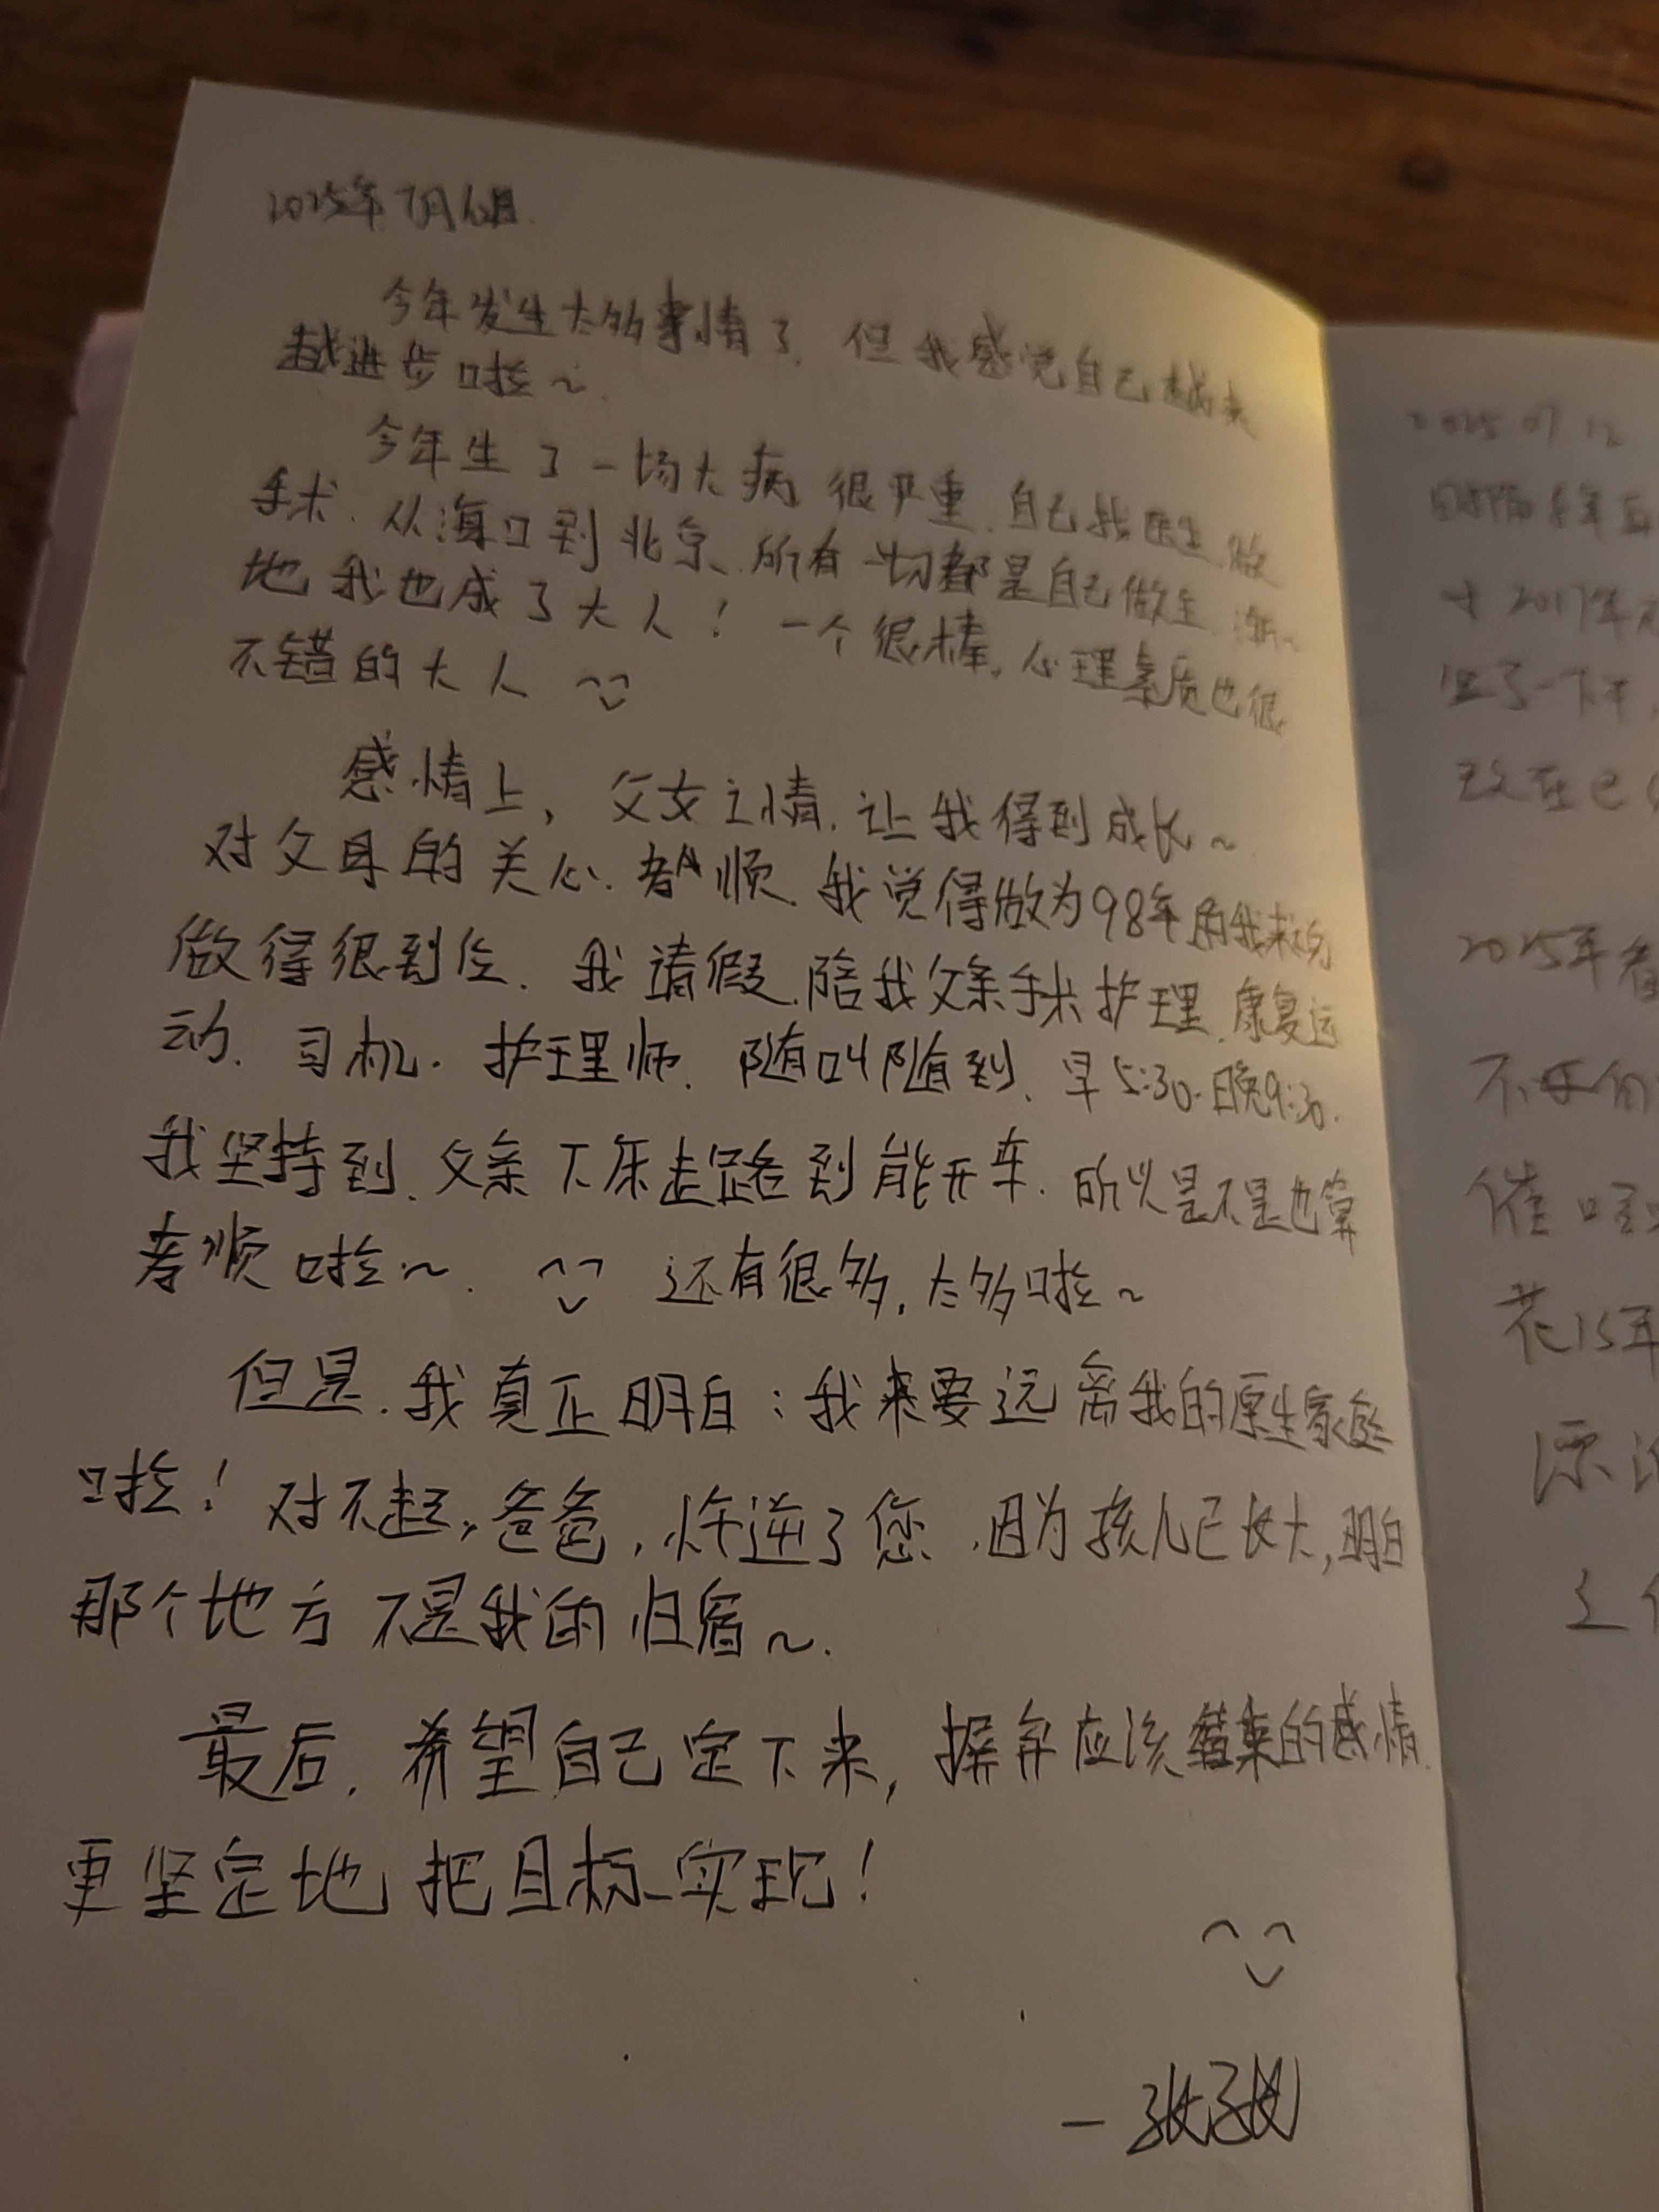 2025年7月12日.
今年发生太多事情了, 但我感觉自己越来
越进步啦~.
今年生了一场大病 很严重. 自己找医生 做
手术. 从海口到北京、所有一切都是自己做主. 渐~
地我也成了大人! 一个很棒, 心理素质也很
不错的大人
感情上, 父女之情, 让我得到成长~
对父母的关心. 孝顺. 我觉得做为98年的我来说
做得很到位. 我请假. 陪我父亲手术护理. 康复运
动. 司机. 护理师. 随叫随到. 早5:30.晚9:30.
我坚持到. 父亲下床走路到能开车. 所以是不是也算
孝顺啦~. 还有很多, 太多啦~
但是. 我真正明白: 我来要远离我的原生家庭
啦! 对不起, 爸爸, 忤逆了您. 因为孩儿已长大, 明白
那个地方不是我的归宿~.
最后, 希望自己定下来, 摒弃应该结束的感情.
更坚定地把目标实现!
2025 07 12
2017年
坐了一下午
2025年
花15年